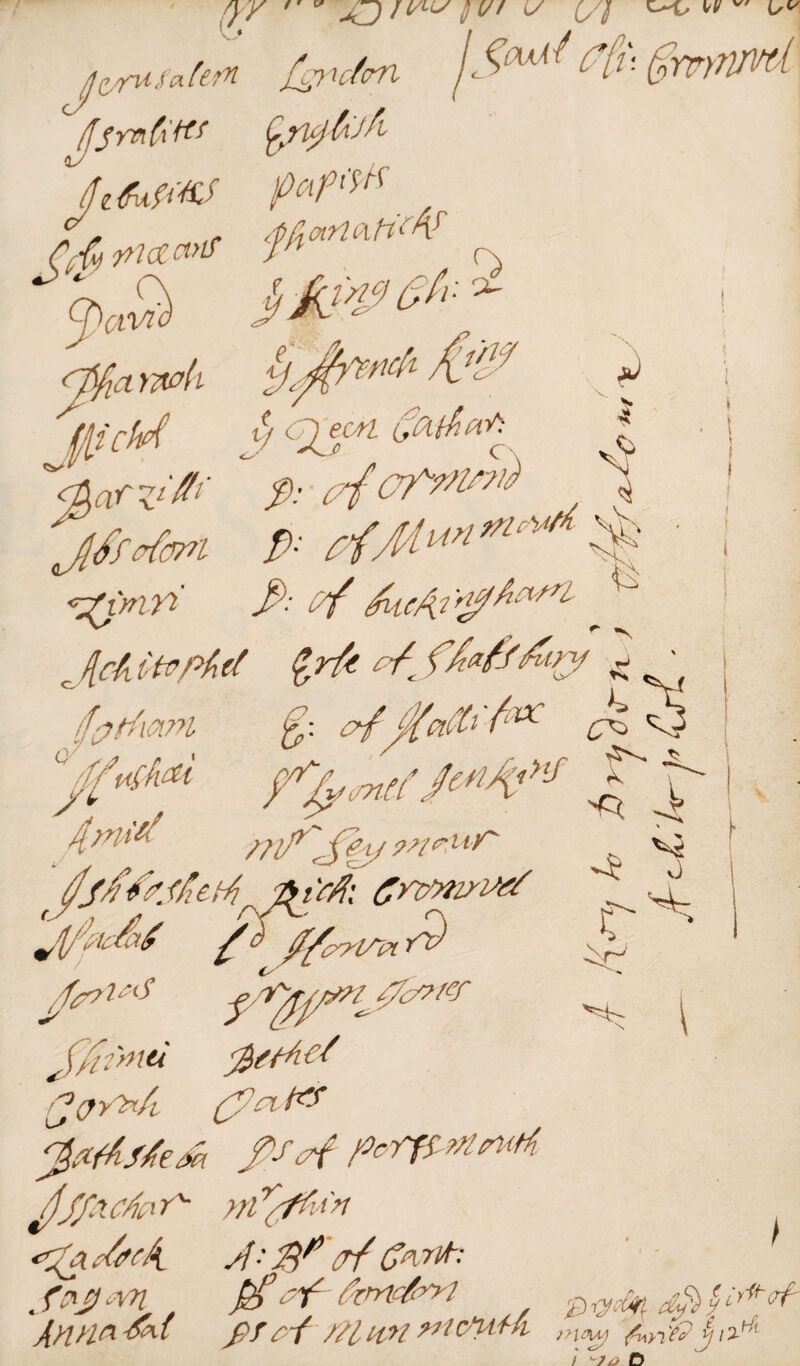 Jerusalem London | Saul Oli: Cromwel
Jsralites English
Jebusites papists
Solymæans phanaticks
David y King Ch: 2
Pharaoh y ffrench King
Michel y Qeen Cathar:
Barzilli D: of ormond
Absolom D: of Munmouth
Zimri D: of buckingham
Achitophel Erle of Shaftsbury
Jotham E: of Hallifax
Hushai Sr Lyonel Jenkins
Amiel mr Seymour
Jshbosheth Rich: Cromwel
Nadab Ld Howard
Jonas Sr Wm Jones
Shimei Bethel
Corah Oates
Bathsheba Ds of portsmouth
Jssachar mr Thin
Zadock A: Bp of Cant:
Sagan Bp of london
Annabal Ds of Munmouth
A Key to Drydons Absalom &
Achitophel.
Dryden dyed y first of
may buried y 12th